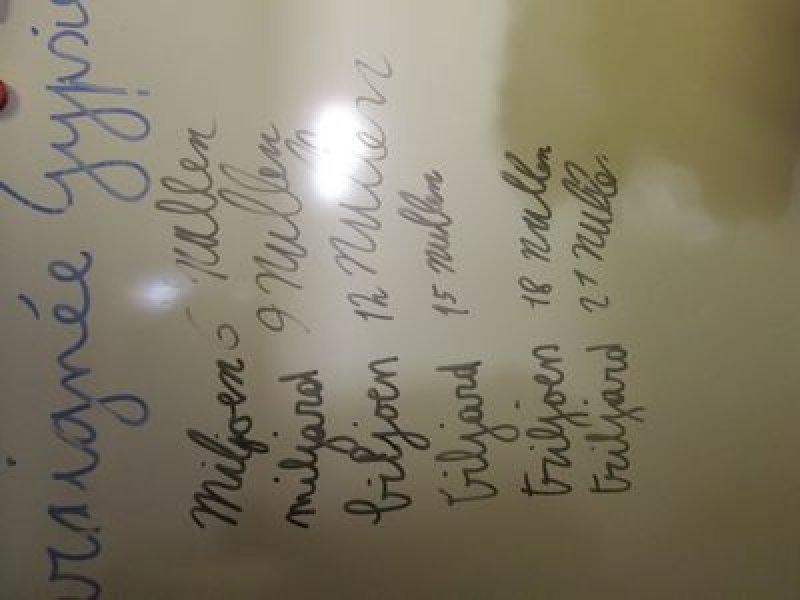 araignée Gypsie
miljoen 6 nullen
miljard 9 nullen
biljoen 12 nullen
biljard 15 nullen
triljoen 18 nullen
triljard 21 nulle.